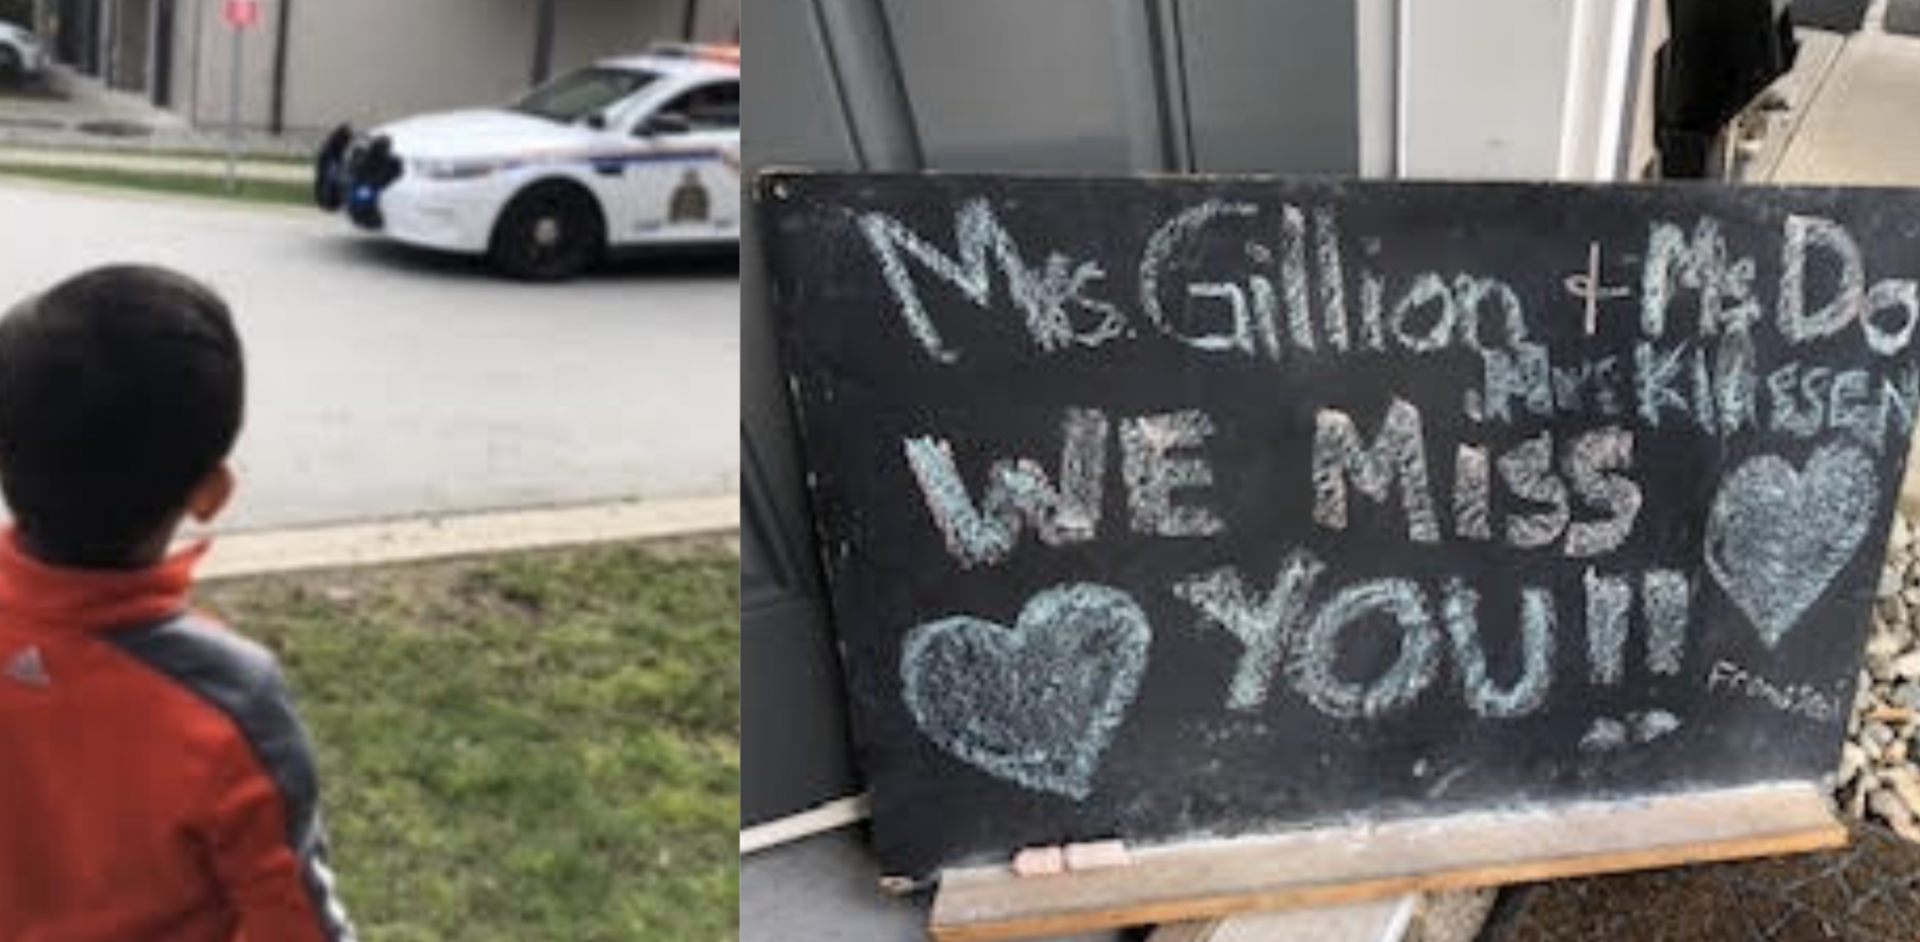 Mrs. Gillion + Ms Do
Mrs Klassen
WE MISS
YOU!!